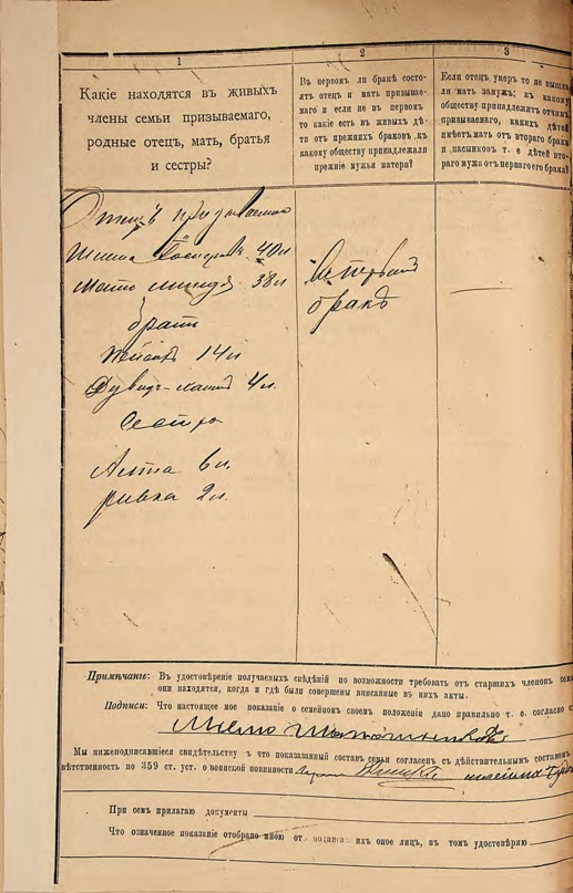 1
Какіе находятся въ живыхъ
члены семьи призываемаго,
родные отецъ, мать, братья
и сестры?
2
Въ первомъ ли бракѣ состо-
ятъ отец и мать призывае-
маго и если не в первомъ
то какіе есть в живыхъ дѣ-
ти отъ прежнихъ браковъ, къ
какому обществу принадлежали
прежніе мужья матери?
3
Если отецъ умеръ то не вышла
ли мать замужъ; къ какому
обществу принадлежитъ отчимъ
призываемаго, какихъ дѣтей
имѣетъ мать отъ втораго брака
и пасынковъ т. е. дѣтей вто-
раго мужа отъ перваго его брака?
Отецъ призываемаго
40 л
Мать 38 л
братья
14 л
Дувидъ- 4 л.
Сестры
6 л.
Ривка 2 л.
Въ первомъ
бракѣ
Примѣчаніе: Въ удостовѣреніе получаемыхъ свѣдѣній по возможности требовать отъ старшихъ членовъ сем
они находятся, когда и гдѣ были совершены вписанные въ нихъ акты.
Подписи: Что настоящее мое показаніе о семейномъ своемъ положеніи дано правильно т. е. согласно с
Мы нижеподписавшіеся свидѣтельству ъ что показазанный составъ семьи согласенъ съ дѣйствительнымъ составомъ
вѣтственность по 359 ст. уст. о воинской повинности
При семъ прилагаю документы
Что означенное показаніе отобрано мною отъ подписа ихъ оное лицъ, въ томъ удостовѣряю